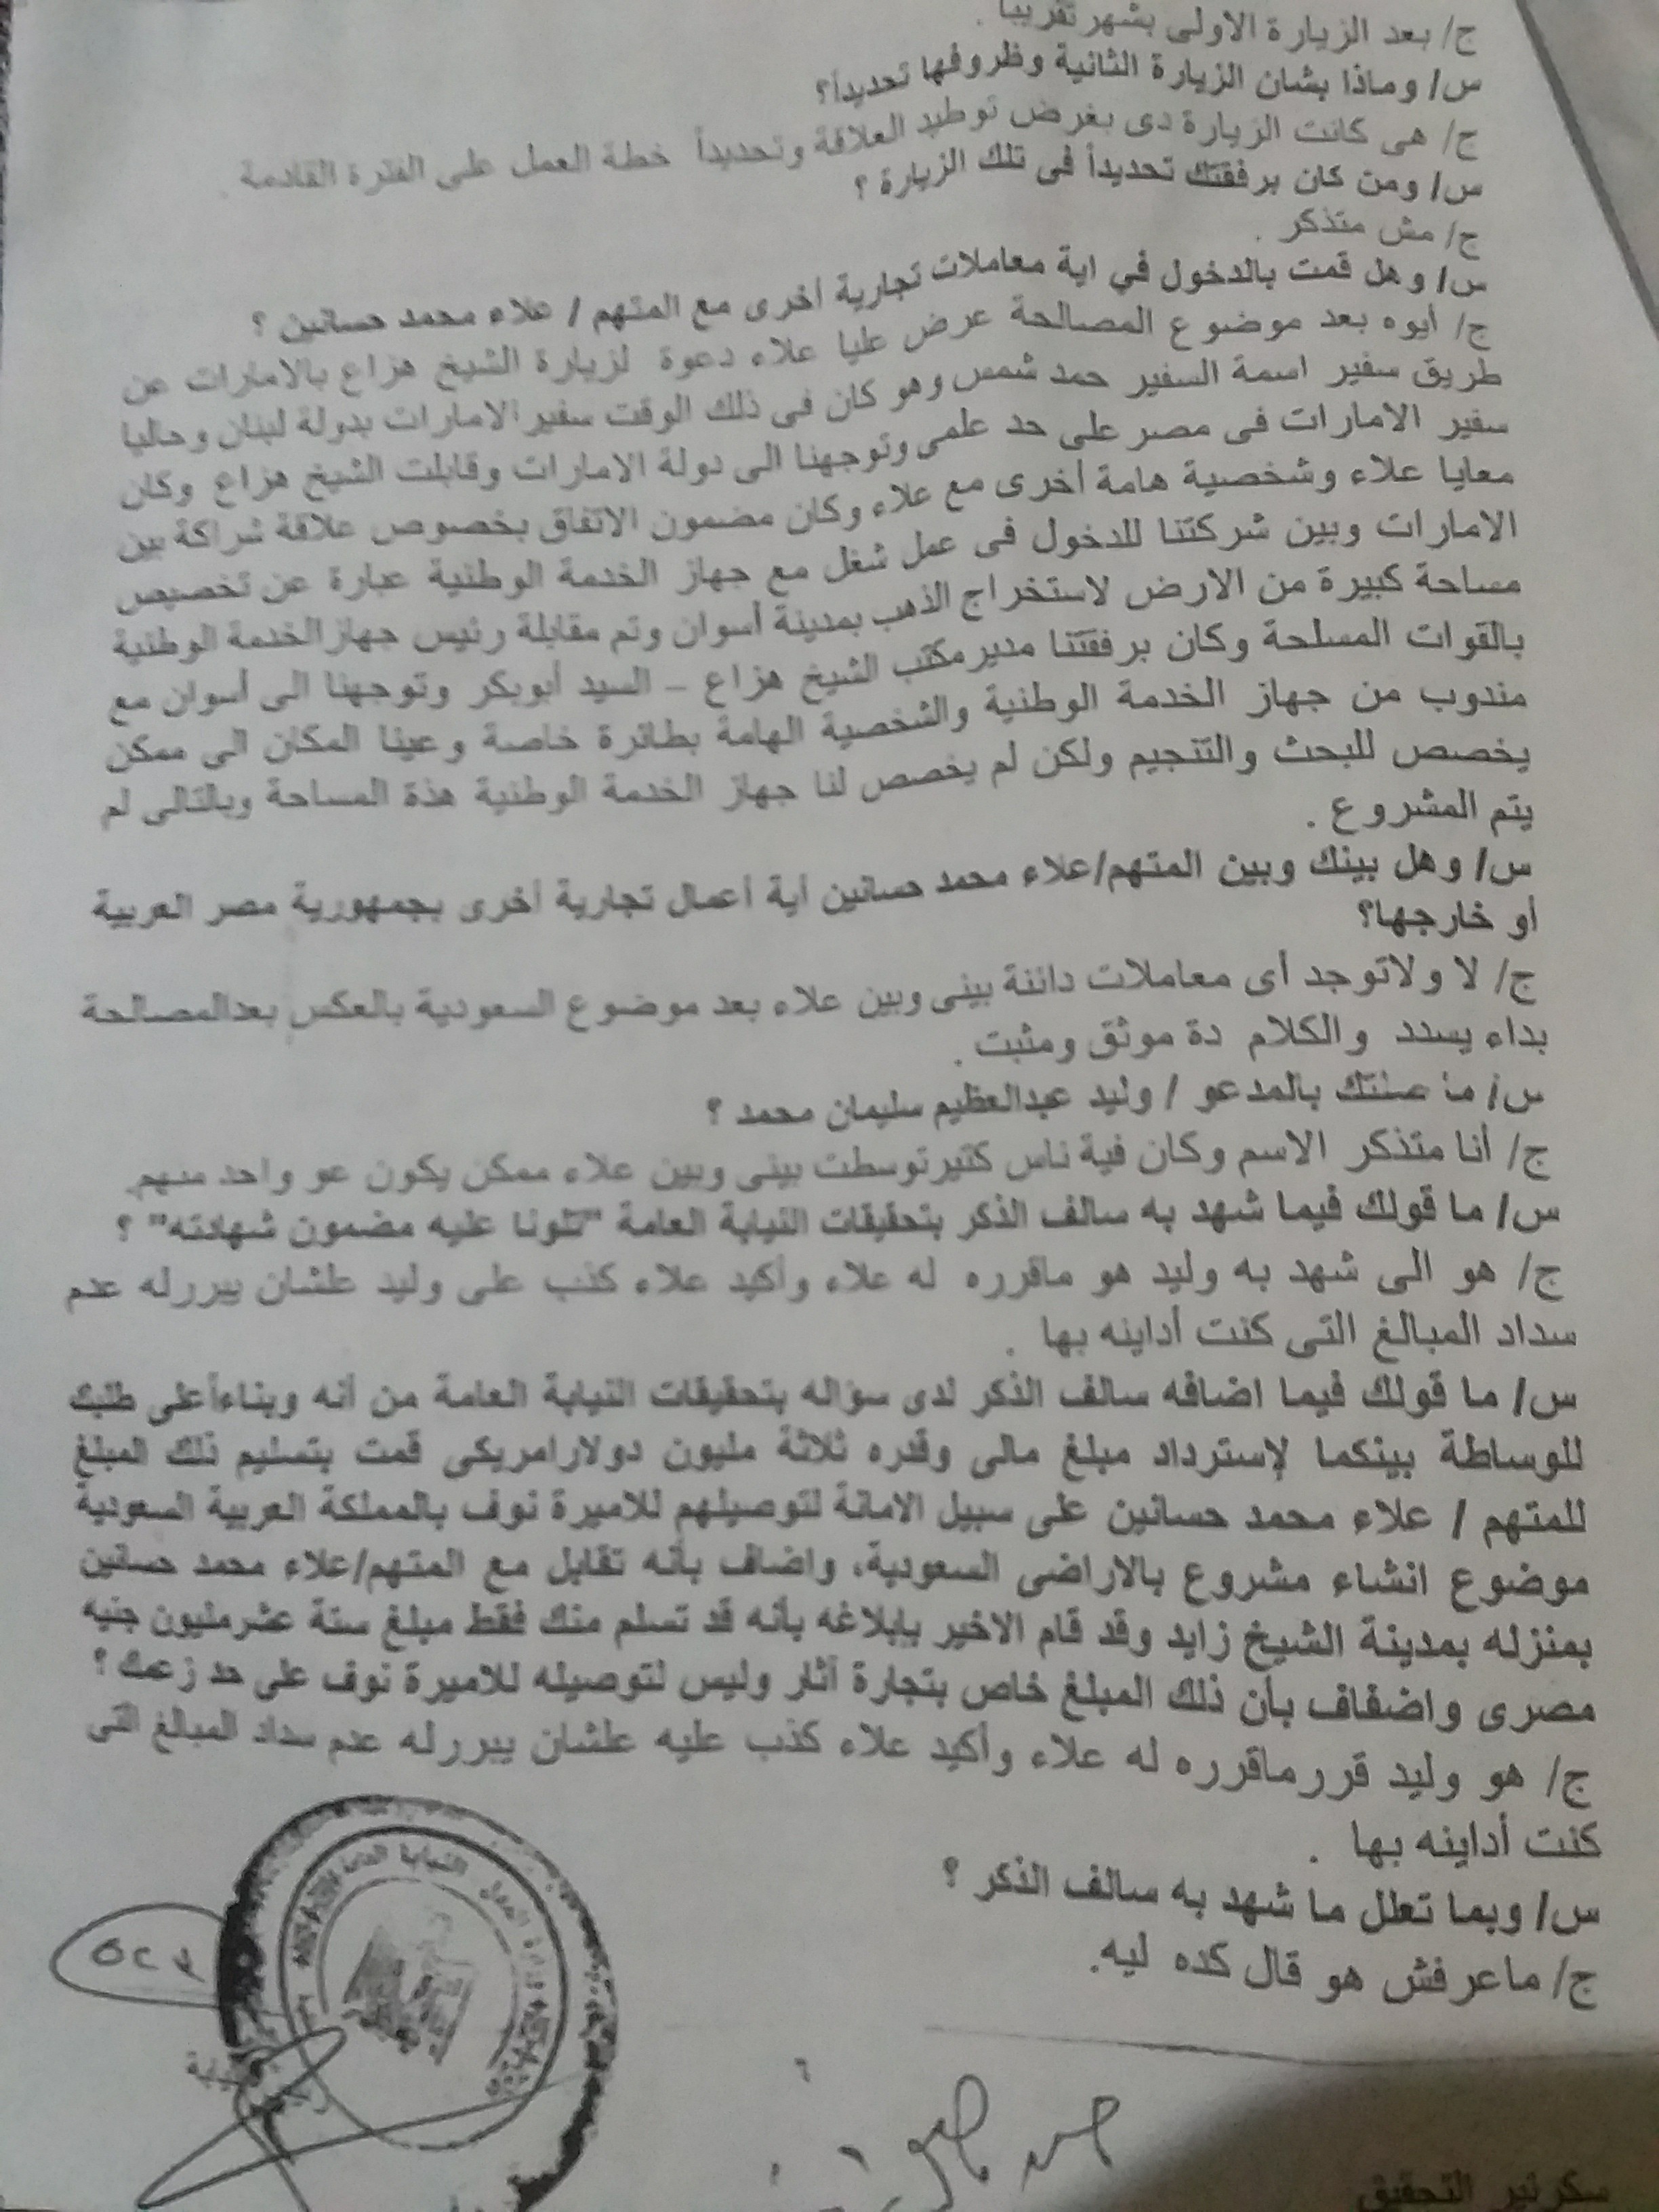 ج/ بعد الزيارة الاولى بشهر تقريبا .
س/ وماذا بشان الزيارة الثانية وظروفها تحديداً؟
ج/ هى كانت الزيارة دى بغرض توطيد العلاقة وتحديداً خطة العمل على الفترة القادمة .
س/ ومن كان برفقتك تحديداً فى تلك الزيارة ؟
ج/ مش متذكر .
س/ وهل قمت بالدخول في اية معاملات تجارية أخرى مع المتهم / علاء محمد حسانين ؟
ج/ أيوه بعد موضوع المصالحة عرض عليا علاء دعوة لزيارة الشيخ هزاع بالامارات عن
طريق سفير اسمة السفير حمد شمس وهو كان فى ذلك الوقت سفير الامارات بدولة لبنان وحاليا
سفير الامارات فى مصر على حد علمى وتوجهنا الى دولة الامارات وقابلت الشيخ هزاع وكان
معايا علاء وشخصية هامة أخرى مع علاء وكان مضمون الاتفاق بخصوص علاقة شراكة بين
الامارات وبين شركتنا للدخول فى عمل شغل مع جهاز الخدمة الوطنية عبارة عن تخصيص
مساحة كبيرة من الارض لاستخراج الذهب بمدينة أسوان وتم مقابلة رئيس جهاز الخدمة الوطنية
بالقوات المسلحة وكان برفقتنا مدير مكتب الشيخ هزاع – السيد أبوبكر وتوجهنا الى أسوان مع
مندوب من جهاز الخدمة الوطنية والشخصية الهامة بطائرة خاصة وعينا المكان الى ممكن
يخصص للبحث والتنجيم ولكن لم يخصص لنا جهاز الخدمة الوطنية هذة المساحة وبالتالى لم
يتم المشروع .
س/ وهل بينك وبين المتهم/علاء محمد حسانين أية أعمال تجارية أخرى بجمهورية مصر العربية
أو خارجها؟
ج/ لا ولاتوجد أى معاملات دائنة بينى وبين علاء بعد موضوع السعودية بالعكس بعدالمصالحة
بداء يسدد والكلام دة موثق ومثبت .
س/ ما صلتك بالمدعو / وليد عبدالعظيم سليمان محمد ؟
ج/ أنا متذكر الاسم وكان فية ناس كتيرتوسطت بينى وبين علاء ممكن يكون هو واحد منهم.
س/ ما قولك فيما شهد به سالف الذكر بتحقيقات النيابة العامة "تلونا عليه مضمون شهادته" ؟
ج/ هو الى شهد به وليد هو ماقرره له علاء وأكيد علاء كذب على وليد علشان يبررله عدم
سداد المبالغ التى كنت أداينه بها .
س/ ما قولك فيما اضافه سالف الذكر لدى سؤاله بتحقيقات النيابة العامة من أنه وبناءأعلى طلبك
للوساطة بينكما لإسترداد مبلغ مالى وقدره ثلاثة مليون دولارامريكى قمت بتسليم ذلك المبلغ
للمتهم / علاء محمد حسانين على سبيل الامانة لتوصيلهم للاميرة نوف بالمملكة العربية السعودية
موضوع انشاء مشروع بالاراضى السعودية، واضاف بأنه تقابل مع المتهم/علاء محمد حسانين
بمنزله بمدينة الشيخ زايد وقد قام الاخير بإبلاغه بأنه قد تسلم منك فقط مبلغ ستة عشرمليون جنيه
مصرى واضفاف بأن ذلك المبلغ خاص بتجارة أثار وليس لتوصيله للاميرة نوف على حد زعمك ؟
ج/ هو وليد قررماقرره له علاء وأكيد علاء كذب عليه علشان يبررله عدم سداد المبالغ التى
كنت أداينه بها .
س/ وبما تعلل ما شهد به سالف الذكر ؟
ج/ ماعرفش هو قال كده ليه.
النيابة العامة
سكرتير التحقيق